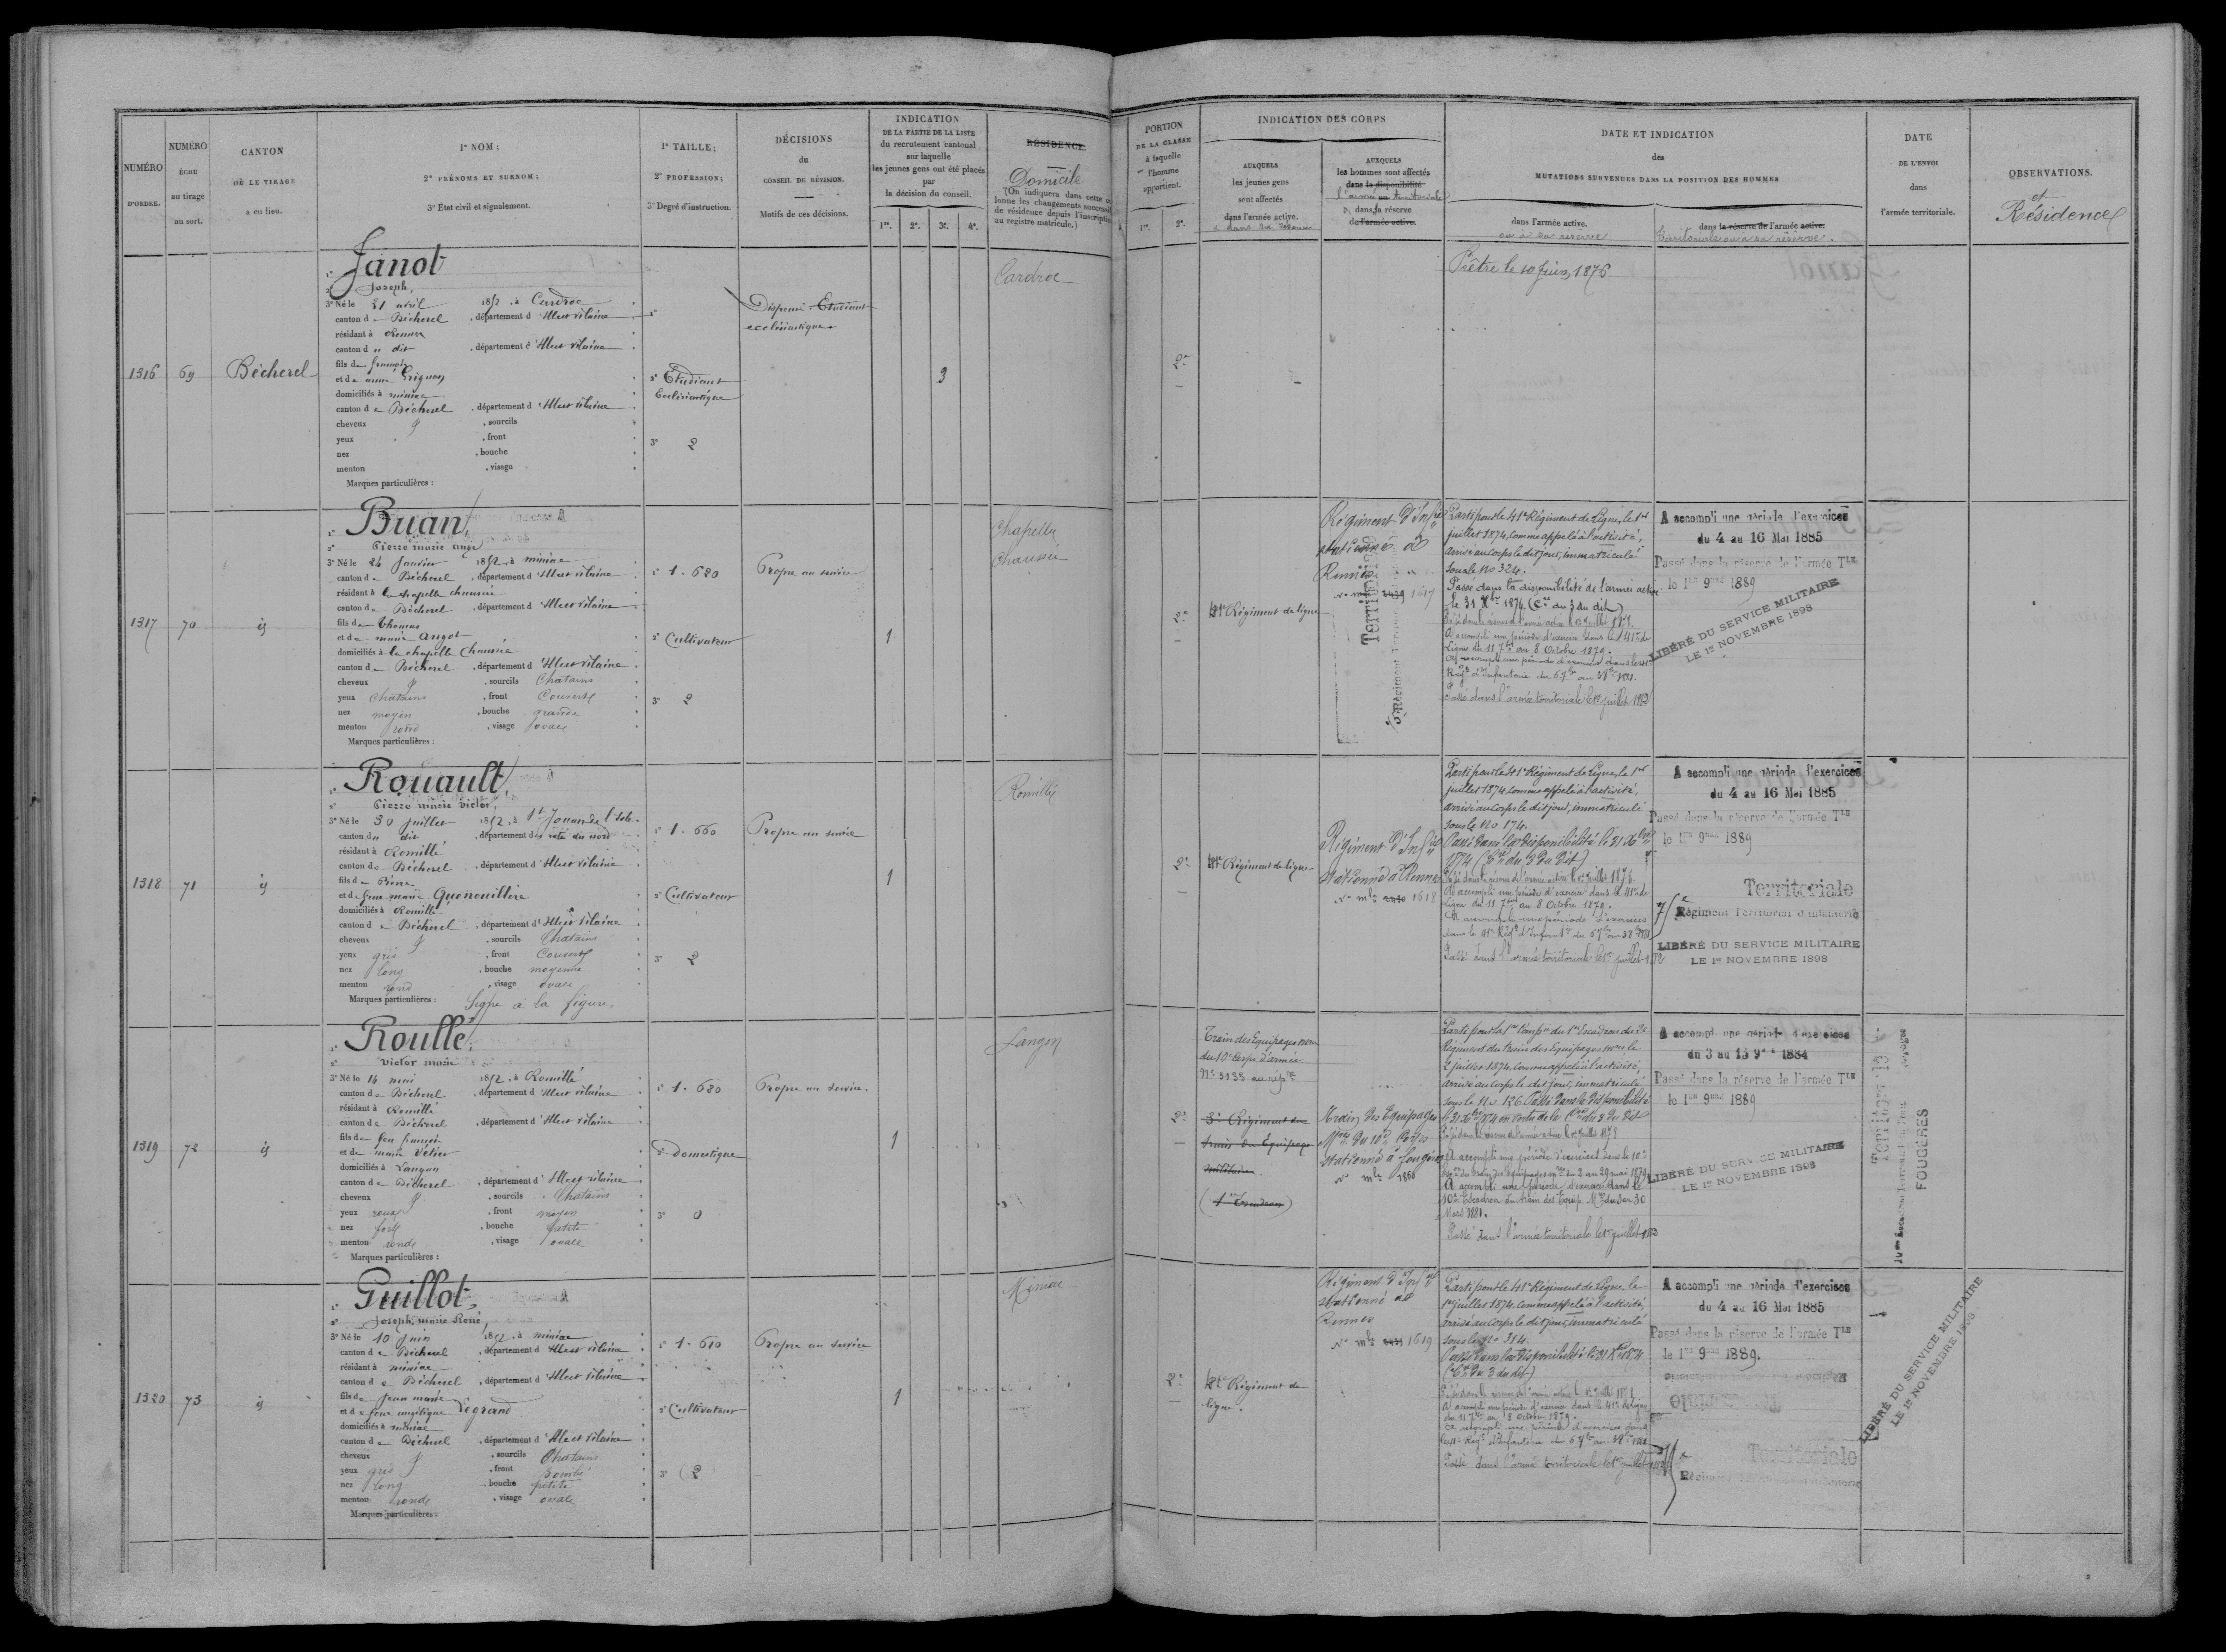 NUMÉRO
D'ORDRE.
NUMÉRO
ÉCHU
au tirage
au sort.
CANTON
OÙ LE TIRAGE
a eu lieu.
1° NOM;
2° PRÉNOMS ET SURNOM;
3° État civil et signalement.
1° TAILLE;
2° PROFESSION;
3° Degré d'instruction.
DÉCISIONS
du
CONSEIL DE RÉVISION.
Motifs de ces décisions.
INDICATION
DE LA PARTIE DE LA LISTE
du recrutement cantonal
sur laquelle
les jeunes gens ont été placés
par
la décision du conseil.
1re. 2e. 3e. 4e.
RÉSIDENCE.
Domicile
(On indiquera dans cette
lonne les changements
de résidence depuis l'inscription
au registre matricule.)
PORTION
DE LA CLASSE
à laquelle
l'homme
appartient.
1re. 2e.
INDICATION DES CORPS
AUXQUELS
les jeunes gens
sont affectés
dans l'armée active.
AUXQUELS
les hommes sont affectés
dans la disponibilité
l'armée territoriale
dans la réserve
de l'armée active.
DATE ET INDICATION
des
MUTATIONS SURVENUES DANS LA POSITION DES HOMMES
dans l'armée active.
ou à sa réserve
dans la réserve de l'armée active.
Territoriale ou à sa réserve.
DATE
DE L'ENVOI
dans
l'armée territoriale.
OBSERVATIONS.
et
Résidence
1316 69 Bécherel
1° Janot
2° Joseph,
3° Né le 21 avril 1852, à Cardroc
canton de Bécherel, département d'Ille et Vilaine
résidant à Rennes
canton du dit, département d'Ille et Vilaine
fils de françois
et de anne Grignon
domiciliés à miniac
canton de Bécherel, département d'Ille et Vilaine
cheveux , sourcils
yeux , front
nez , bouche
menton , visage
Marques particulières :
2° Etudiant
Ecclésiastique
3° 2
Dispensé Etudiant
ecclésiastique
3
Cardroc
2e
Prêtre le 10 juin 1876
1317 70 id
1° Buan,
2° Pierre marie ange
3° Né le 24 Janvier 1852, à miniac
canton de Bécherel, département d'Ille et Vilaine
résidant à la chapelle chaussée
canton de Bécherel, département d'Ille et Vilaine
fils de Thomas
et de marie angot
domiciliés à la chapelle Chaussée
canton de Bécherel, département d'Ille et Vilaine
cheveux , sourcils Chatains
yeux chatains , front Couvert
nez moyen , bouche grande
menton rond , visage ovale
Marques particulières :
1° 1.620
2° Cultivateur
3° 2
Propre au service
1
Chapelle
Chaussée
2e
41e Régiment de ligne
Régiment d'Infie
stationné à
Rennes
1617
Territoriale
Régiment Territorial
Parti pour le 41e Régiment de Ligne, le 1er
juillet 1874, comme appelé à l'activité,
arrivé au corps le dit jour, immatriculé
sous le No 324.
Passé dans la disponibilité de l'armée active
le 31 Xbre 1874 (Cre du 3 du dit)
Passé dans la réserve de l'armée active le 1er juillet 1879.
A accompli une période d'exercice dans le 41e de
Ligne du 11 7bre au 8 Octobre 1879.
A accompli une période d'exercices dans le 41e
Régt d'Infanterie du 6 7bre au 3 8bre 1881.
Passé dans l'armée territoriale le 1er juillet 1882
A accompli une période d'exercices
du 4 au 16 Mai 1885
Passé dans la réserve de l'armée Tle
le 1er 9bre 1889
LIBÉRÉ DU SERVICE MILITAIRE
LE 1er NOVEMBRE 1898
1318 71 id
1° Rouault,
2° Pierre marie victor,
3° Né le 30 juillet 1852, à St Jouan de l'isle
canton du dit, département des côtes du nord
résidant à Romillé
canton de Bécherel, département d'Ille et Vilaine
fils de Pierre
et de feue marie Quenouillère
domiciliés à Romillé
canton de Bécherel, département d'Ille et Vilaine
cheveux , sourcils Chatains
yeux gris , front Couvert
nez long , bouche moyenne
menton rond , visage ovale
Marques particulières : Signe à la figure
1° 1.660
2° Cultivateur
3° 2
Propre au service
1
Romillé
2e
41e Régiment de ligne
Régiment d'Infie
stationné à Rennes
No mle 1618
Parti pour le 41e Régiment de Ligne, le 1er
juillet 1874, comme appelé à l'activité,
arrivé au corps le dit jour, immatriculé
sous le No 174.
Passé dans la disponibilité le 31 Xbre
1874 (Cre du 3 du dit)
Passé dans la réserve de l'armée active le 1er juillet 1879.
A accompli une période d'exercice dans le 41e de
Ligne du 11 7bre au 8 Octobre 1879.
A accompli une période d'exercices
dans le 41e Régt d'Infanterie du 6 7bre au 3 8bre 1881
Passé dans l'armée territoriale le 1er juillet 1882
A accompli une période d'exercices
du 4 au 16 Mai 1885
Passé dans la réserve de l'armée Tle
le 1er 9bre 1889
Territoriale
Régiment Territorial d'Infanterie
LIBÉRÉ DU SERVICE MILITAIRE
LE 1er NOVEMBRE 1898
1319 72 id
1° Roullé,
2° Victor marie
3° Né le 14 mai 1852, à Romillé
canton de Bécherel, département d'Ille et Vilaine
résidant à Romillé
canton de Bécherel, département d'Ille et Vilaine
fils de feu françois
et de marie Vétier
domiciliés à Langan
canton de Bécherel, département d'Ille et Vilaine
cheveux , sourcils Chatains
yeux roux , front moyen
nez fort , bouche petite
menton ronde , visage ovale
Marques particulières :
1° 1.620
2° Domestique
3° 0
Propre au service.
1
Langan
2e
Train des Equipages mres
du 10e Corps d'armée.
No 3133 au répre
3e Régiment du
train des Equipages
militaires
(1er Escadron)
Train des Equipages
Mres du 10e Corps
stationné à Fougères
No mle 1860
Parti pour la 1re Compie du 1er Escadron du 2e
Régiment du train des Equipages mres le
2 juillet 1874, comme appelé à l'activité,
arrivé au corps le dit jour, immatriculé
sous le No 126. Passé dans la disponibilité
le 31 Xbre 1874 en vertu de la Cre du 3 du dit
Passé dans la réserve de l'armée active le 1er juillet 1879
A accompli une période d'exercices dans le 10e
Esc. du train des équipages mres du 2 au 29 mai 1879
A accompli une période d'exercices dans le
10e Escadron du train des Equip. Mres du 3 au 30
Mars 1881.
Passé dans l'armée territoriale le 1er juillet 1882
A accompli une période d'exercices
du 3 au 15 9bre 1884
Passé dans la réserve de l'armée Tle
le 1er 9bre 1889
LIBÉRÉ DU SERVICE MILITAIRE
LE 1er NOVEMBRE 1898
Territoriale
FOUGÈRES
1320 73 id
1° Guillot,
2° Joseph, marie René,
3° Né le 10 Juin 1852, à miniac
canton de Bécherel, département d'Ille et Vilaine
résidant à miniac
canton de Bécherel, département d'Ille et Vilaine
fils de Jean marie
et de feue angélique Legrand
domiciliés à miniac
canton de Bécherel, département d'Ille et Vilaine
cheveux , sourcils Chatains
yeux gris , front bombé
nez long , bouche petite
menton ronde , visage ovale
Marques particulières :
1° 1.610
2° Cultivateur
3° 2
Propre au service
1
Miniac
2e
41e Régiment de
ligne.
Régiment d'Infie
stationné à
Rennes
No mle 1619
Parti pour le 41e Régiment de Ligne le
1er juillet 1874, comme appelé à l'activité,
arrivé au corps le dit jour, immatriculé
sous le No 314.
Passé dans la disponibilité le 31 Xbre 1874
(Cre du 3 du dit)
Passé dans la réserve de l'armée active le 1er juillet 1879.
A accompli une période d'exercice dans le 41e de Ligne
du 11 7bre au 8 Octobre 1879.
A accompli une période d'exercices dans
le 41e Régt d'Infanterie du 6 7bre au 3 8bre 1881
Passé dans l'armée territoriale le 1er juillet 1882
A accompli une période d'exercices
du 4 au 16 Mai 1885
Passé dans la réserve de l'armée Tle
le 1er 9bre 1889.
Territoriale
LIBÉRÉ DU SERVICE MILITAIRE
LE 1er NOVEMBRE 1898